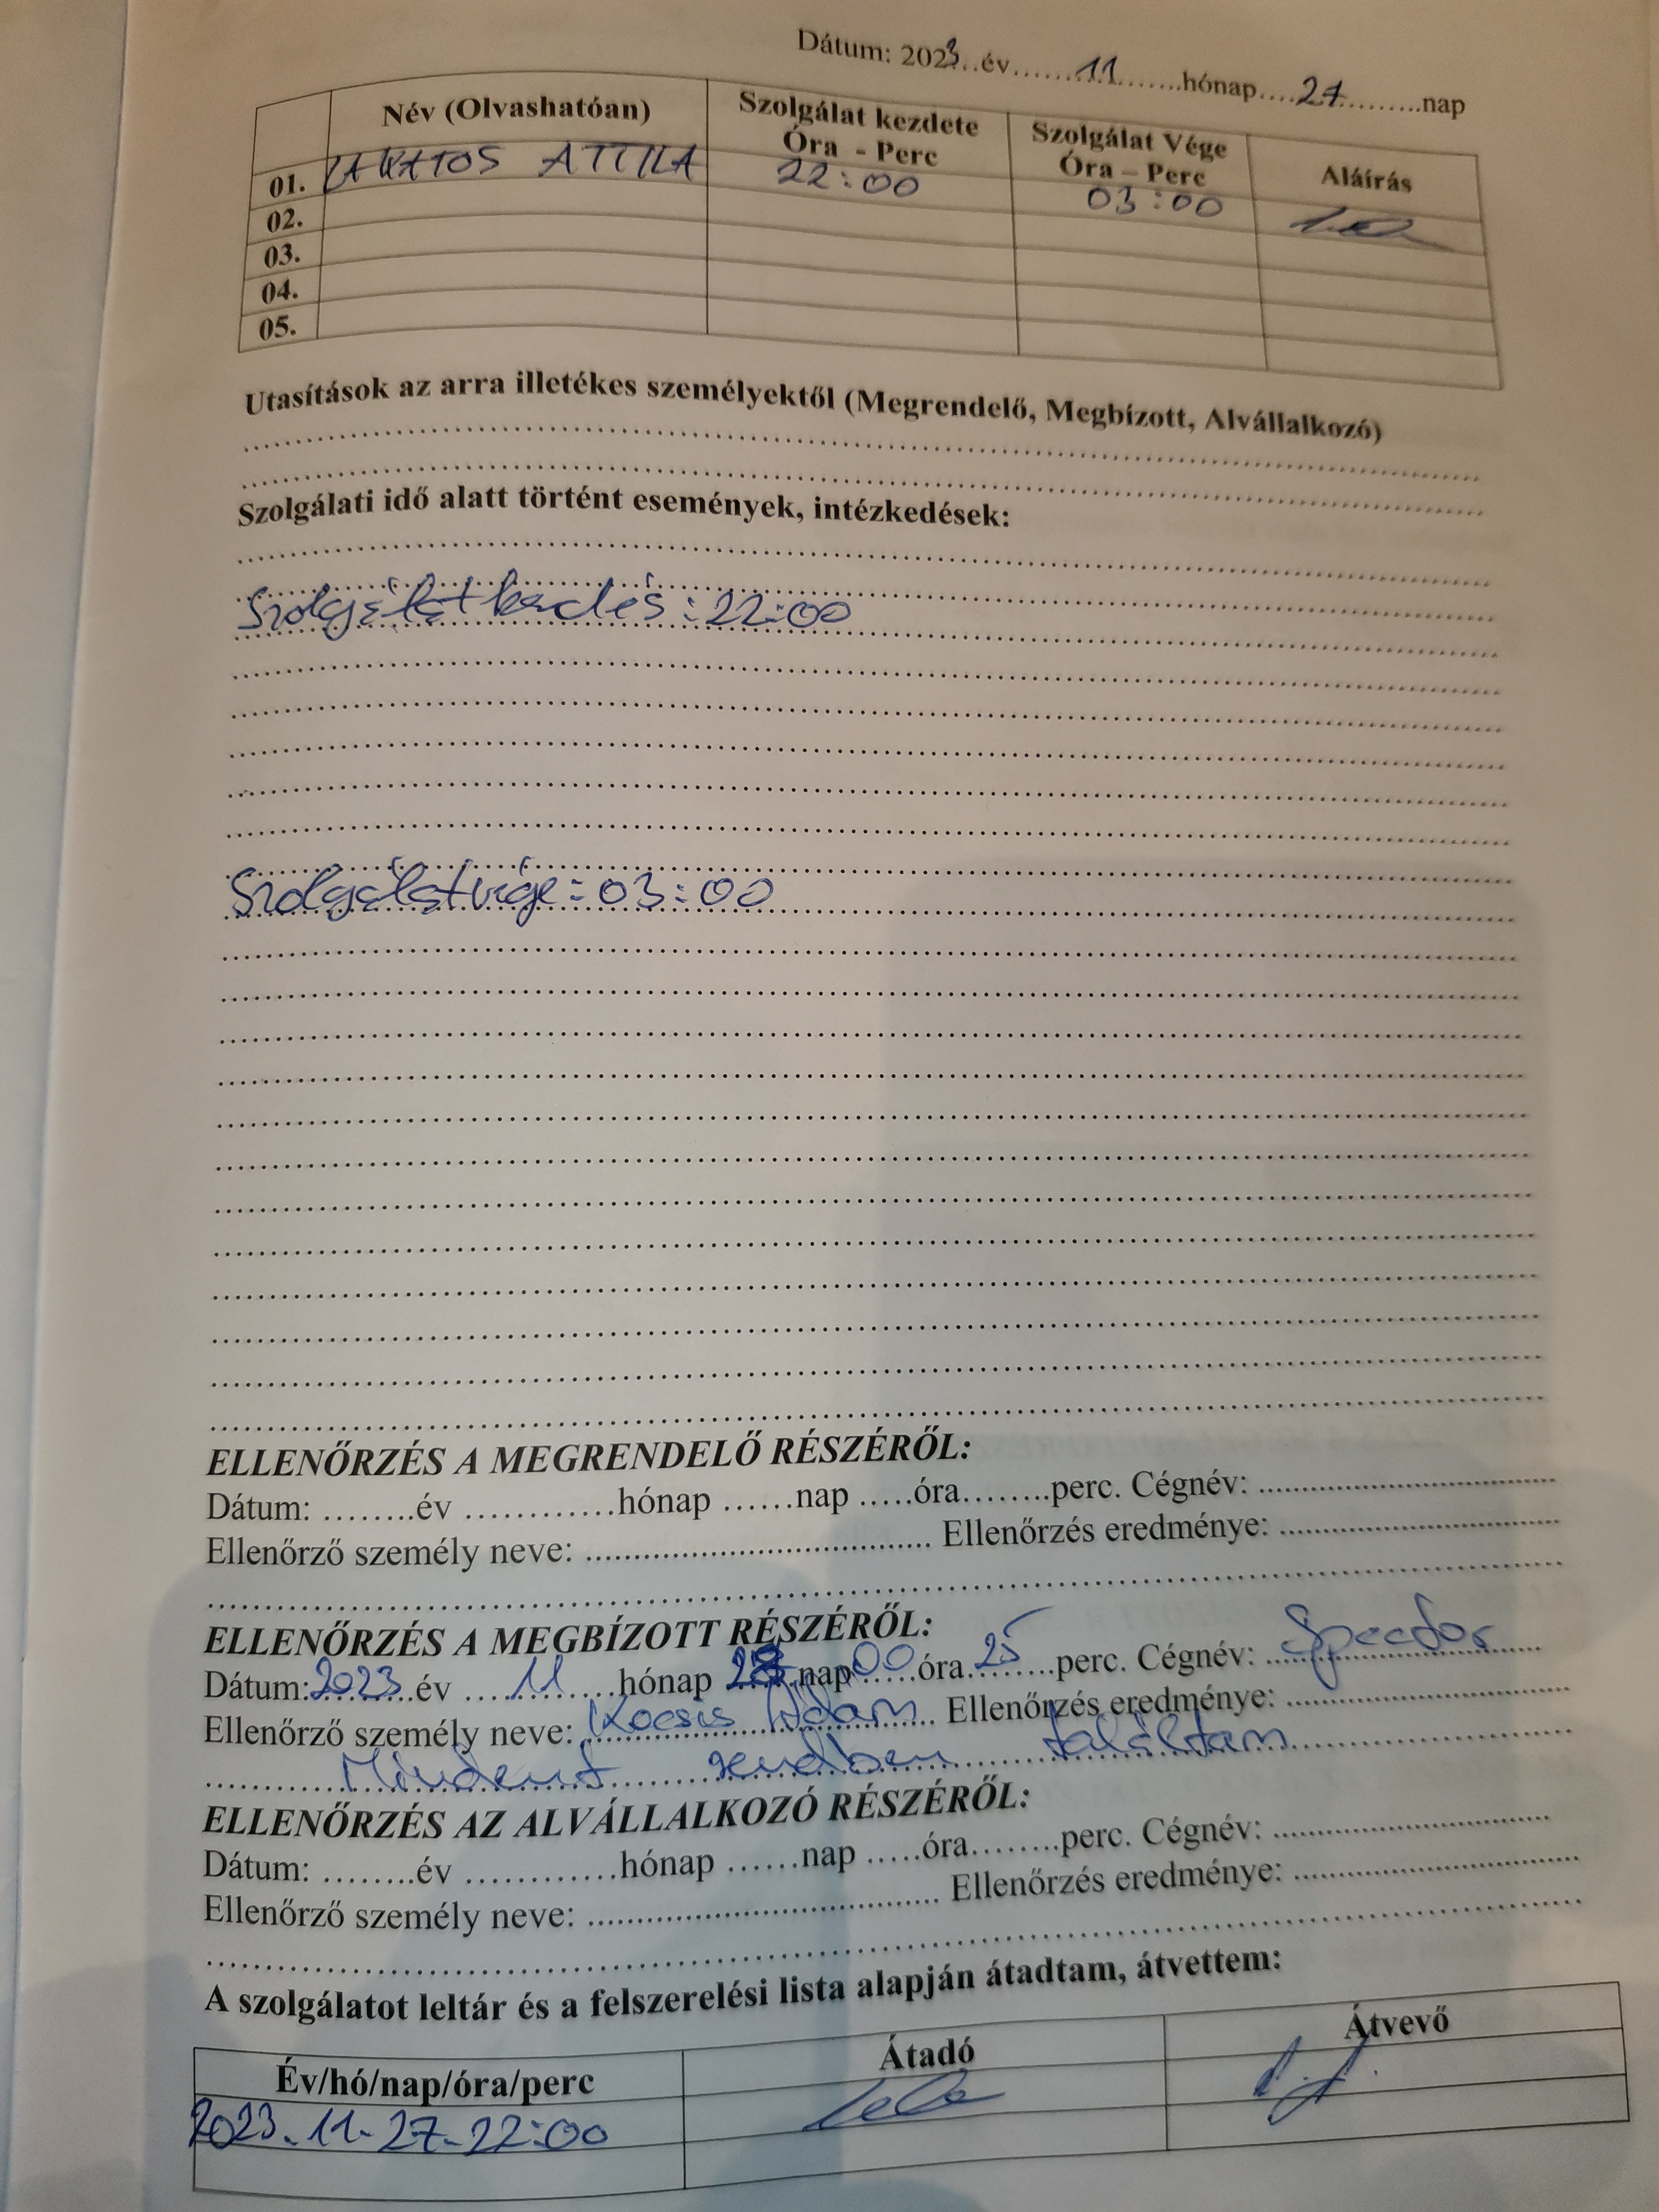 Dátum: 2023 év 11 hónap 27 nap
Név (Olvashatóan) Szolgálat kezdete Óra - Perc Szolgálat Vége Óra – Perc Aláírás
01. LAKATOS ATTILA 22:00 03:00
02.
03.
04.
05.
Utasítások az arra illetékes személyektől (Megrendelő, Megbízott, Alvállalkozó)
Szolgálati idő alatt történt események, intézkedések:
Szolgálatkezdés: 22:00
Szolgálatvége: 03:00
ELLENŐRZÉS A MEGRENDELŐ RÉSZÉRŐL:
Dátum: ........év ............hónap ......nap .....óra........perc. Cégnév: ................
Ellenőrző személy neve: ................ Ellenőrzés eredménye: ................
ELLENŐRZÉS A MEGBÍZOTT RÉSZÉRŐL:
Dátum: 2023 év 11 hónap 28 nap 00 óra 25 perc. Cégnév: Spector
Ellenőrző személy neve: Kocsis Ádám Ellenőrzés eredménye: ................
Mindent rendben találtam
ELLENŐRZÉS AZ ALVÁLLALKOZÓ RÉSZÉRŐL:
Dátum: ........év ............hónap ......nap .....óra........perc. Cégnév: ................
Ellenőrző személy neve: ................ Ellenőrzés eredménye: ................
A szolgálatot leltár és a felszerelési lista alapján átadtam, átvettem:
Év/hó/nap/óra/perc Átadó Átvevő
2023. 11. 27. 22:00